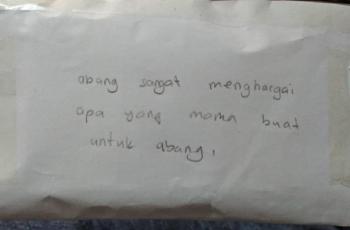 abang sangat menghargai
apa yang mama buat
untuk abang,